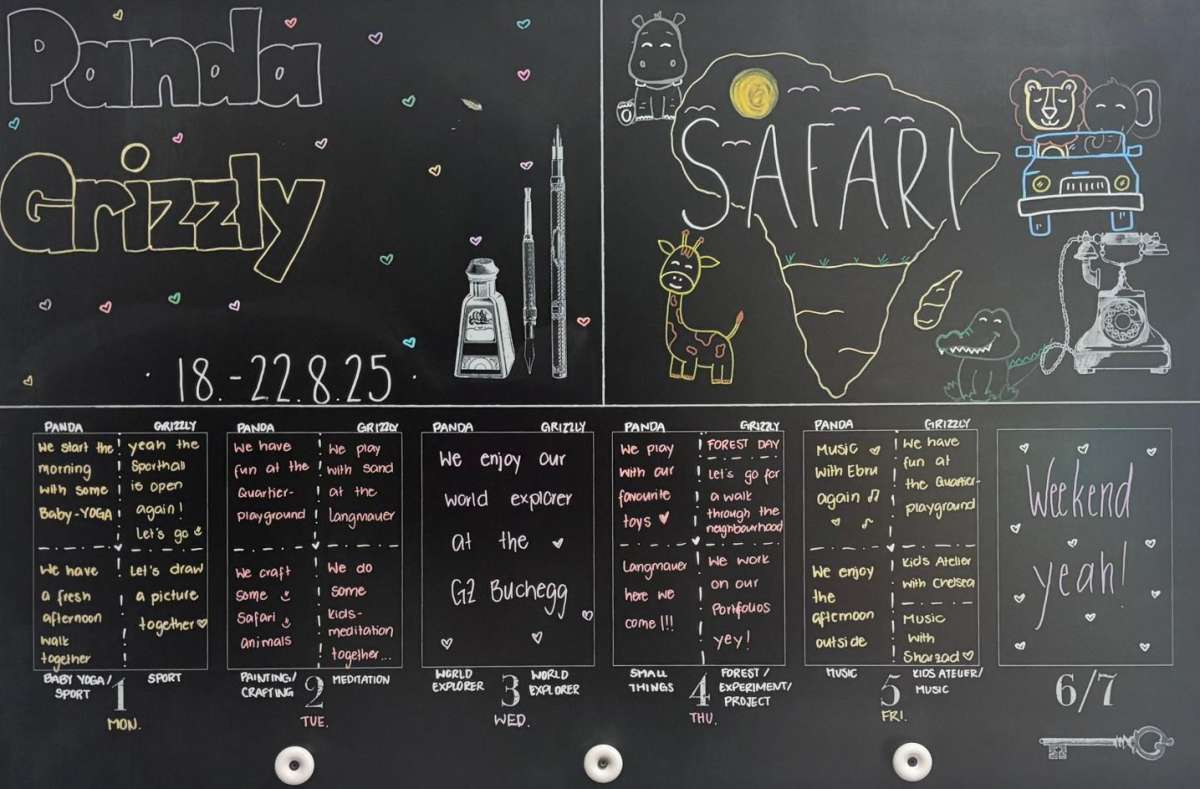 Panda
Grizzly
18.-22.8.25
SAFARI
PANDA
GRIZZLY
We start the
morning
with some
Baby-YOGA
yeah the
Sporthall
is open
again!
Let's go
We have
a fresh
afternoon
walk
together
Let's draw
a picture
together
BABY YOGA/
SPORT
SPORT
1
MON.
PANDA
GRIZZLY
We have
fun at the
Quartier-
playground
We play
with sand
at the
Langmauer
We craft
some
Safari
animals
We do
some
Kids-
meditation
together...
PAINTING/
CRAFTING
MEDITATION
2
TUE.
PANDA
GRIZZLY
We enjoy our
world explorer
at the
GZ Buchegg
WORLD
EXPLORER
WORLD
EXPLORER
3
WED.
PANDA
GRIZZLY
We play
with our
favourite
toys
FOREST DAY
Let's go for
a walk
through the
neighbourhood
Langmauer
here we
come!!!
We work
on our
Portfolios
yey!
SMALL
THINGS
FOREST/
EXPERIMENT/
PROJECT
4
THU.
PANDA
GRIZZLY
Music
with Ebru
again
We have
fun at
the Quartier-
playground
We enjoy
the
afternoon
outside
Kids Atelier
with Chelsea
Music
with
Sharzad
MUSIC
KIDS ATELIER/
MUSIC
5
FRI.
Weekend
yeah!
6/7